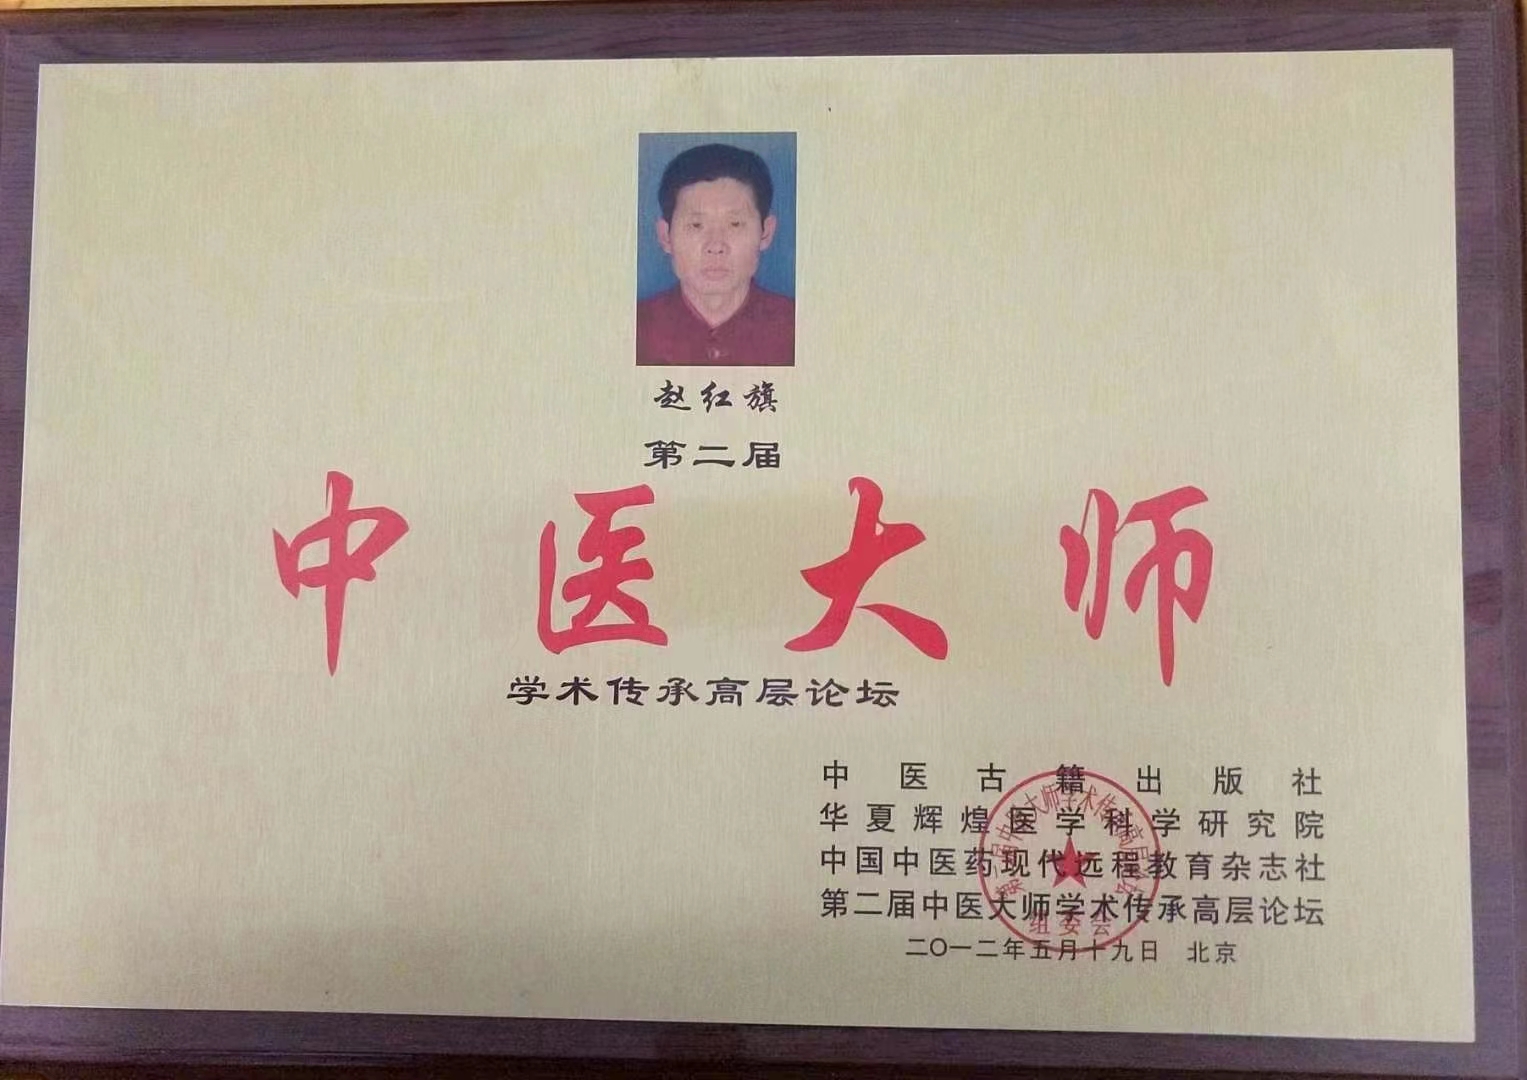 赵红旗
第二届
中医大师
学术传承高层论坛
中医古籍出版社
华夏辉煌医学科学研究院
中国中医药现代远程教育杂志社
第二届中医大师学术传承高层论坛
二〇一二年五月十九日 北京
第二届中医大师学术传承高层论坛
组委会